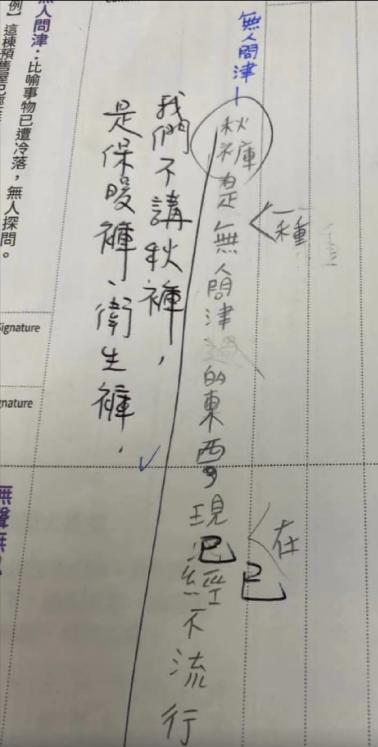 無人問津－
秋褲是無人問津的東西，現已經不流行
一種
在
已
我們不講秋褲，
是保暖褲、衛生褲.
無人問津：比喻事物已遭冷落，無人探問。
例】這棟預售屋已
Signature
gnature
無聲無